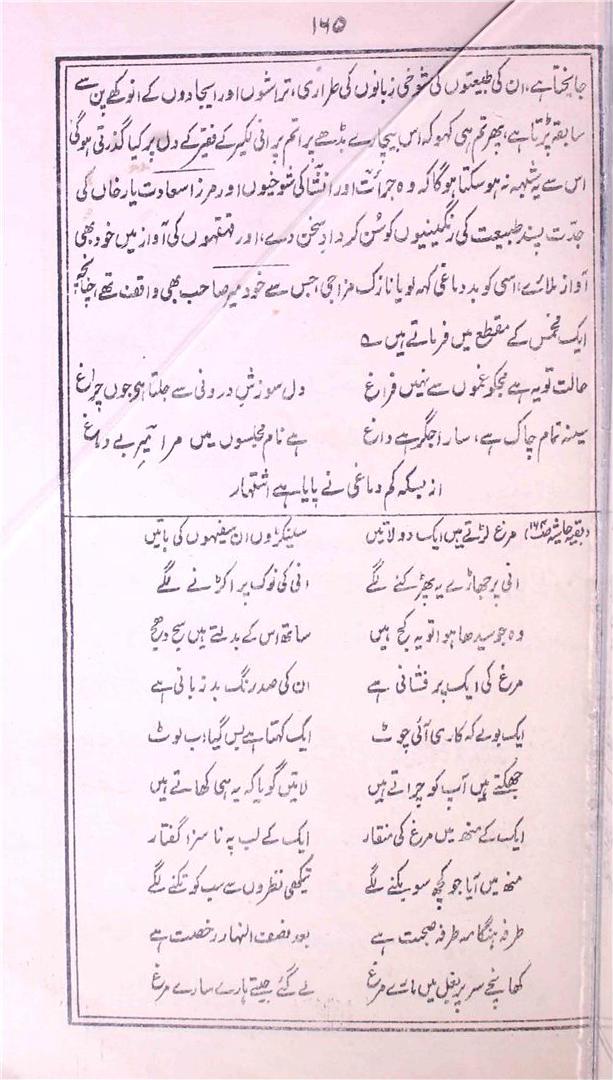 ۱۶۵
جا پختا ہے، ان کی طبیعتوں کی شوخی زبانوں کی طراری، تراشوں اور ایجادوں کے انوکھے پن سے
سابقہ پڑتا ہے، پھر تم ہی کہو کہ اس بیچارے بڈھے پر اتم پرانی لکیر کے فقیر کے دل پر کیا گذرتی ہوگی
اس سے یہ شبہہ نہ ہو سکتا ہوگا کہ وہ جرأت اور انشا کی شوخیوں اور مرزا سعادت یار خاں کی
جدت پسند طبیعت کی رنگینیوں کو سُن کر دادِ سخن دے، اور قہقہوں کی آواز میں خود بھی
آواز ملائے، اسی کو بددماغی کہہ لو یا نازک مزاجی، جس سے خود میر صاحب بھی واقف تھے، چنانچہ
ایک مخمس کے مقطع میں فرماتے ہیں ؎
حالت تو یہ ہے مجکو غموں سے نہیں فراغ دل سوزشِ درونی سے جلتا ہی جوں چراغ
سینہ تمام چاک ہے، سارا جگر ہے داغ ہے نام مجلسوں میں مرا میرِ بے دماغ
از بسکہ کم دماغی نے پایا ہے اشتہار
(بقیہ حاشیہ صفحہ ۱۶۴) مرغ لڑتے ہیں ایک دو لاتیں سینکڑوں ان سفیہوں کی باتیں
انی پر جھاڑے یہ پھڑکنے لگے انی کی نوک پر اکڑنے لگے
وہ جو سیدھا ہوا تو یہ کج ہیں ساتھ اس کے بدلتے ہیں سج دھج
مرغ کی ایک پر فشانی ہے ان کی صد رنگ بدزبانی ہے
ایک بولے کہ کاری آئی چوٹ ایک کہتا ہے بس گیا اب لوٹ
جھکتے ہیں آپ کو چراتے ہیں لاتیں گویا کہ یہ ہی کھاتے ہیں
ایک کے منھ میں مرغ کی منقار ایک کے لب پہ ناسزا گفتار
منھ میں آیا جو کچھ سو بکنے لگے تیکھی نظروں سے سب کو تکنے لگے
طرفہ ہنگامہ طرفہ صحبت ہے بعد نصف النہار رخصت ہے
کھانچے سر پر بغل میں مارے مرغ لے گئے جیتے ہارے سارے مرغ